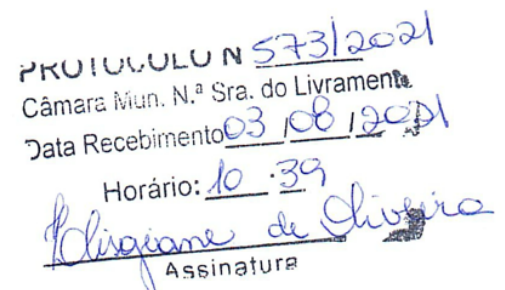 PROTOCOLO N 573/2021
Câmara Mun. N.ª Sra. do Livramento
Data Recebimento 03 / 08 / 2021
Horário: 10 : 39
de Oliveira
Assinatura